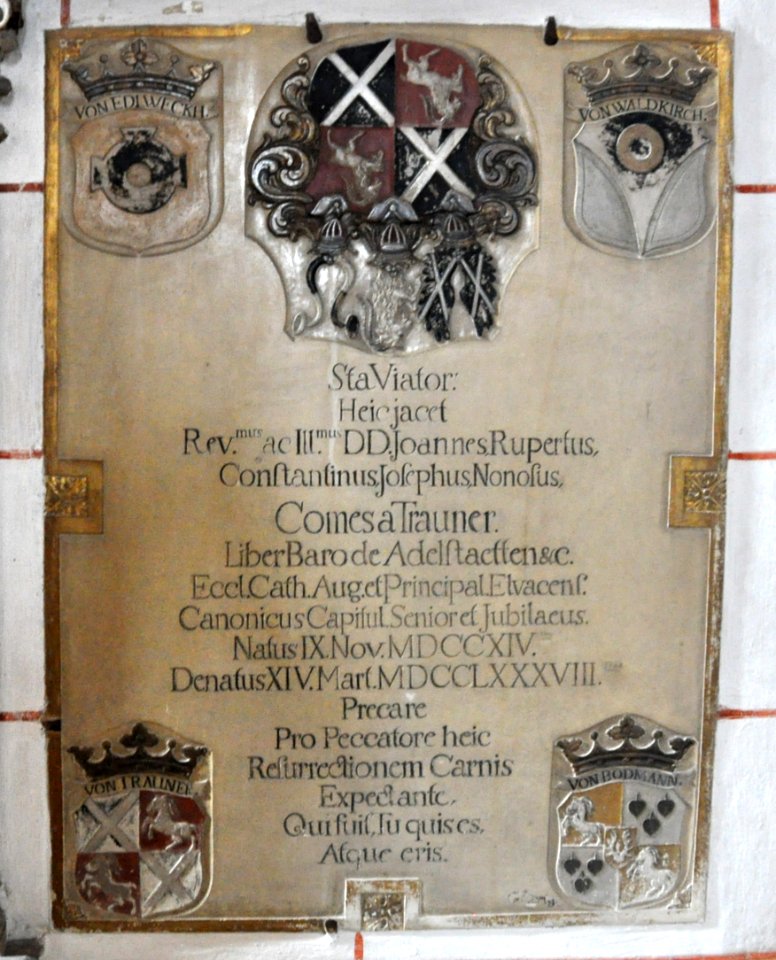 VON EDLWECKH.
VON WALDKIRCH.
Sta Viator:
Heic jacet
Rev.mus ac Ill.mus DD. Joannes Rupertus,
Constantinus, Josephus, Nonosus,
Comes a Trauner.
Liber Baro de Adelstaetten &c.
Eccl. Cath. Aug. et Principal. Elvacens.
Canonicus Capitul. Senior et Jubilaeus.
Natus IX. Nov. MDCCXIV.
Denatus XIV. Mart. MDCCLXXXVIII.
Precare
Pro Peccatore heic
Resurrectionem Carnis
Expectante,
Qui fuit, Tu quis es,
Atque eris.
VON TRAUNER.
VON BODMANN.